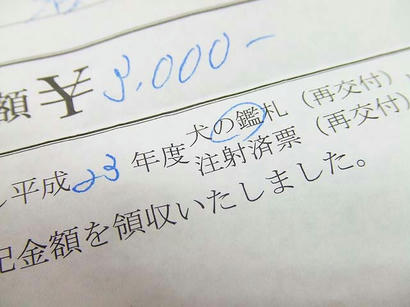 額 ¥ 3,000-
平成23年度 犬の鑑札（再交付）
注射済票（再交付）
記金額を領収いたしました。